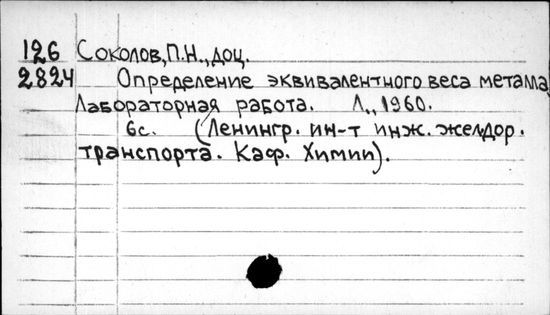 126 Соколов, П.Н., доц.
2824 Определение эквивалентного веса металла
Лабораторная работа. Л., 1960.
6с. (Ленингр. ин-т инж. желдор.
транспорта. Каф. Химии).